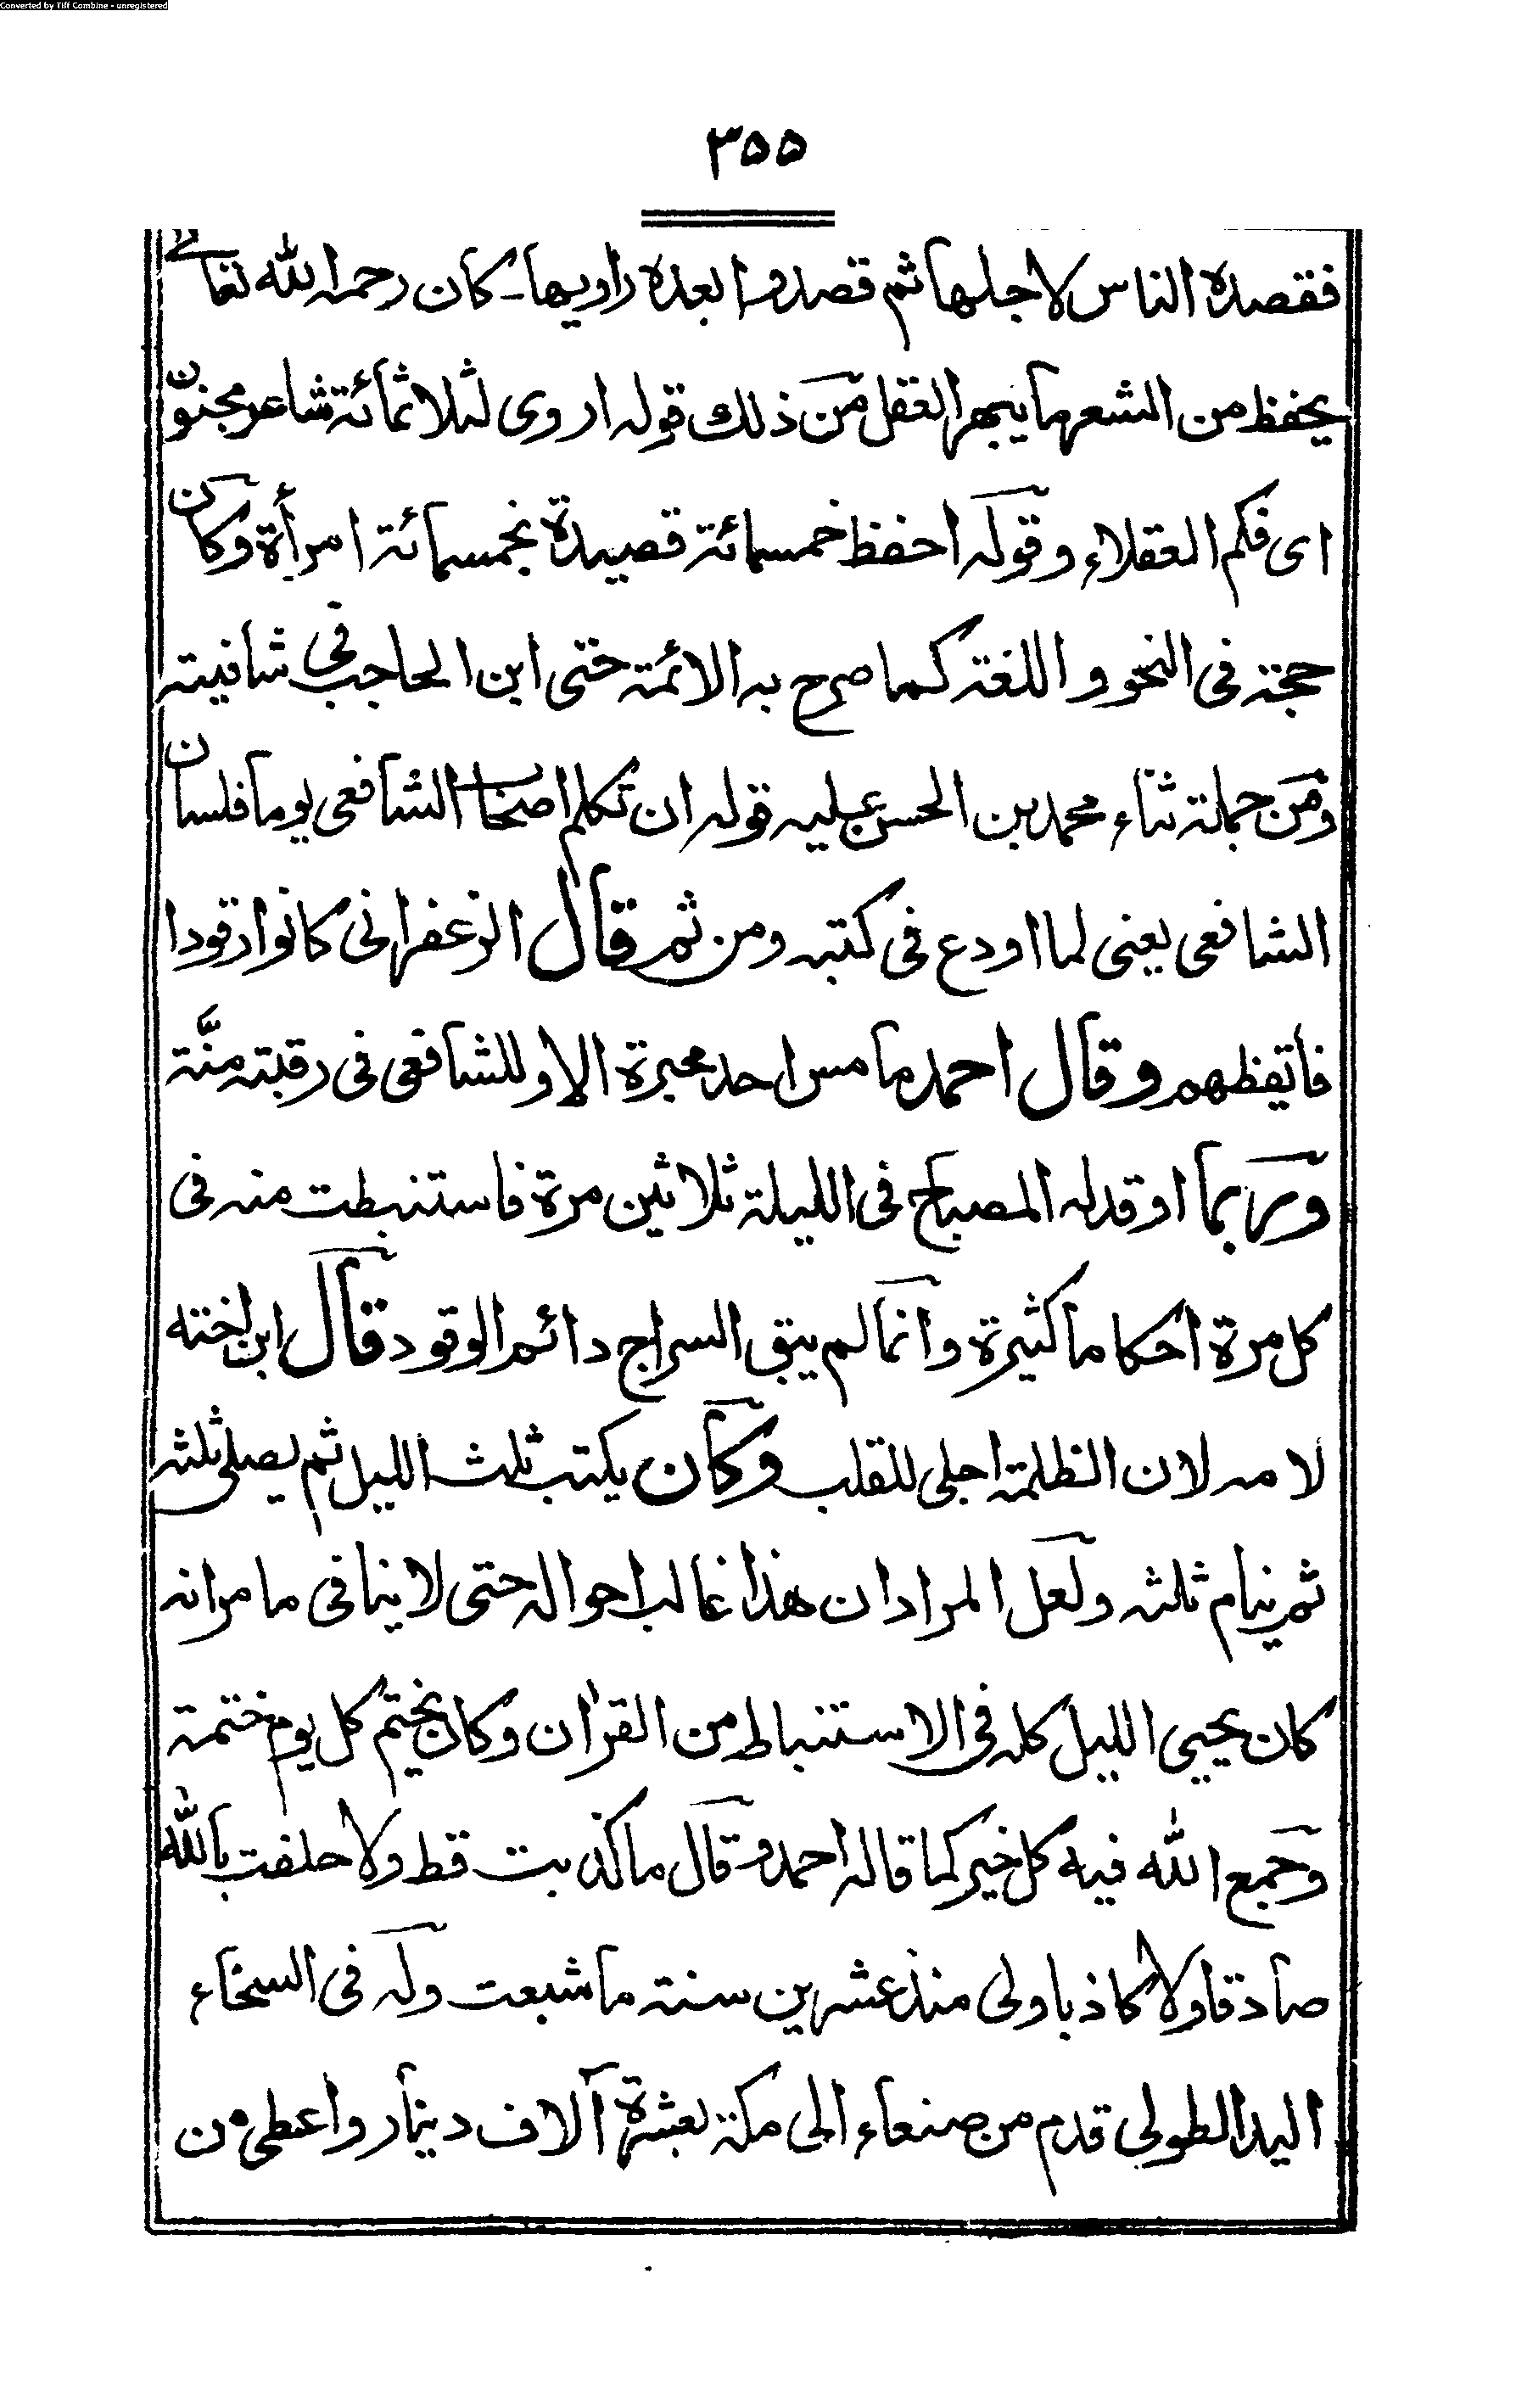 Converted by Tiff Combine - unregistered
٣٥٥
فقصده الناس لاجلها ثم قصدوا بعده راويها - كان رحمه الله تعالے
يحفظ من الشعر ما يبهر العقل من ذلك قوله اروى لثلاثمائة شاعر مجنون
اى فكم العقلاء وقوله احفظ خمسمائة قصيدة بخمسمائة امرأة وكان
حجة فى النحو و اللغة كما صرح به الائمة حتى ابن الحاجب فى شافيته
ومن جملة ثناء محمد بن الحسن عليه قوله ان تكلم اصحاب الشافعى يوما فلسان
الشافعى يعنى لما اودع فى كتبه ومن ثم قال الزعفرانى كانوا رقودا
فأيقظهم وقال احمد ما مس احد محبرة الا وللشافعى فى رقبته منّة
وربما اوقد له المصباح فى الليلة ثلاثين مرة فاستنبطت منه فى
كل مرة احكاما كثيرة وانما لم يبق السراج دائم الوقود قال ابن اخته
لامه لان الظلمة اجلى للقلب وكان يكتب ثلث الليل ثم يصلى ثلثه
ثم ينام ثلثه ولعل المراد ان هذا غالب احواله حتى لا ينافى ما مر انه
كان يحيى الليل كله فى الاستنباط من القرأن وكان يختم كل يوم ختمة
وجمع الله فيه كل خير كما قاله احمد وقال ما كذبت قط ولا حلفت بالله
صادقا ولا كاذبا ولى منذ عشرين سنة ما شبعت وله فى السخاء
اليد الطولى قدم من صنعاء الى مكة بعشرة آلاف دينار واعطى من